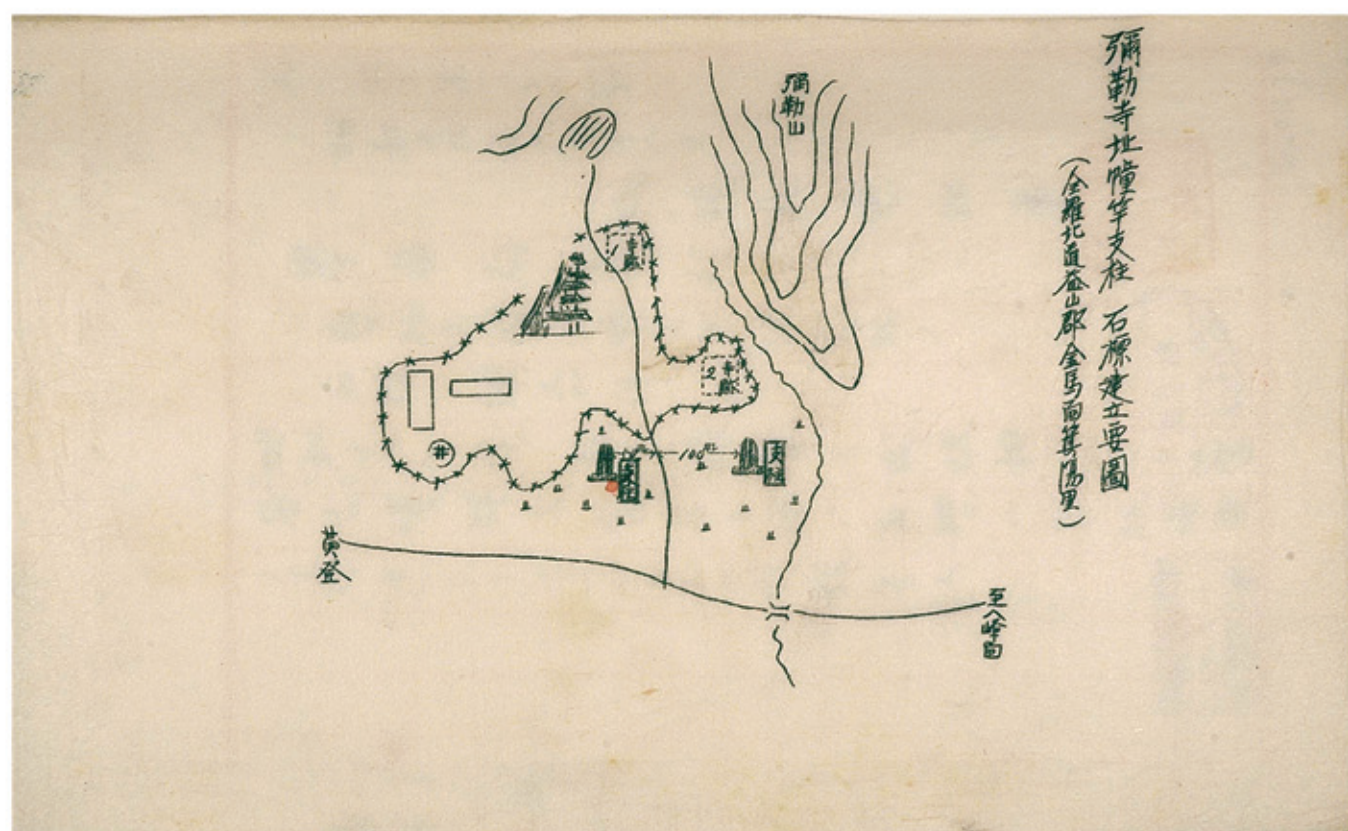 彌勒寺址幢竿支柱 石標建立要圖
(全羅北道益山郡金馬面箕陽里)
彌勒山
1 寺跡
2 寺跡
井
支柱
100
支柱
黄登
至八峰面